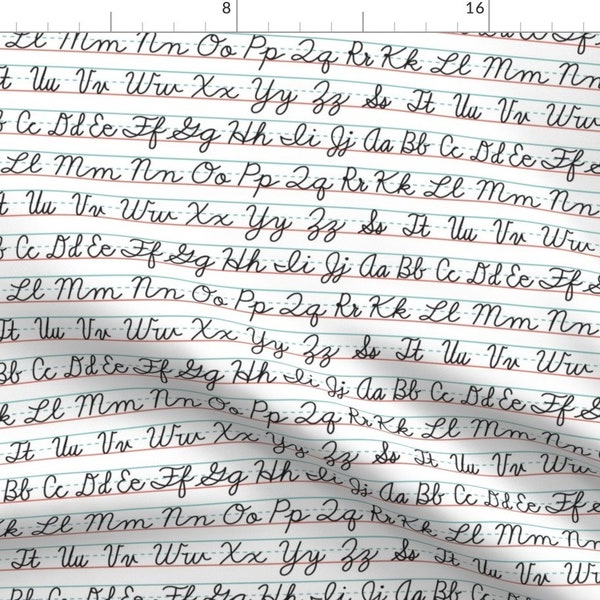 8 16
Ll Mm Nn Oo Pp Qq Rr Kk Ll Mm Nn
Uu Vv Ww Xx Yy Zz Ss Tt Uu Vv Ww
Cc Dd Ee Ff Gg Hh Ii Jj Aa Bb Cc Dd Ee Ff
Ll Mm Nn Oo Pp Qq Rr Kk Ll Mm Nn
Uu Vv Ww Xx Yy Zz Ss Tt Uu Vv Ww
Cc Dd Ee Ff Gg Hh Ii Jj Aa Bb Cc Dd Ee Ff
Ll Mm Nn Oo Pp Qq Rr Kk Ll Mm Nn
Tt Uu Vv Ww Xx Yy Zz Ss Tt Uu Vv Ww
Bb Cc Dd Ee Ff Gg Hh Ii Jj Aa Bb Cc Dd Ee Ff
Ll Mm Nn Oo Pp Qq Rr Kk Ll Mm Nn
Tt Uu Vv Ww Xx Yy Zz Ss Tt Uu Vv Ww
Bb Cc Dd Ee Ff Gg Hh Ii Jj Aa Bb Cc Dd Ee Ff
Kk Ll Mm Nn Oo Pp Qq Rr Kk Ll Mm Nn
Tt Uu Vv Ww Xx Yy Zz Ss Tt Uu Vv Ww
Bb Cc Dd Ee Ff Gg Hh Ii Jj Aa Bb Cc Dd Ee